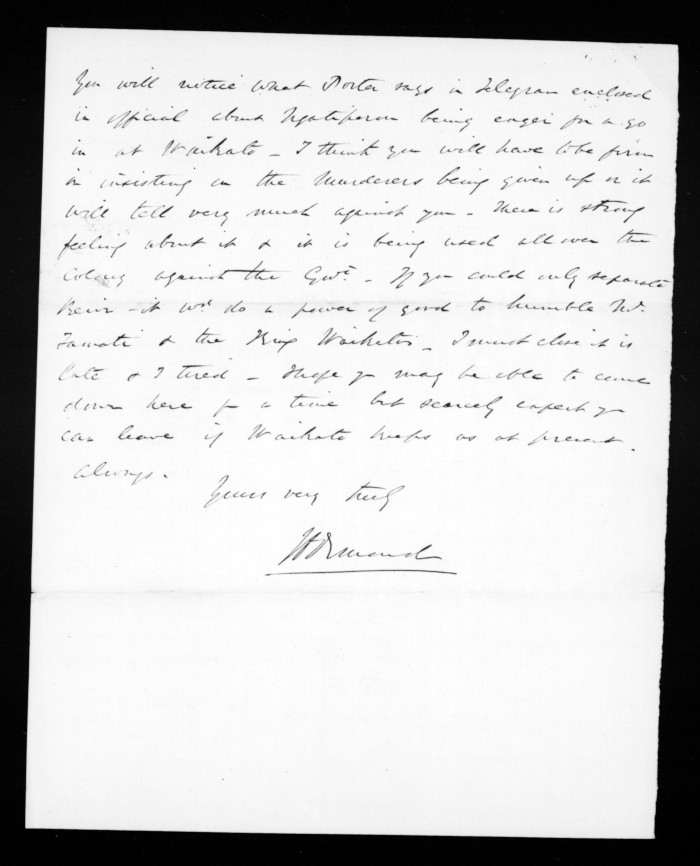 You will notice what Porter says in Telegram enclosed
in official about Ngatiporou being eager for a go
in at Waikato - I think you will have to be firm
in insisting on the Murderers being given up or it
will tell very much against you - there is strong
feeling about it & it is being used all over the
Colony against the Govt. - If you could only separate
Rewi - it wd. do a power of good to humble Mr.
Tamati & the King Waikatos - I must close it is
late & I tired - I hope yo may be able to come
down here for a time but scarcely expect yo
can leave if Waikato keeps as at present.
Always.
Yours very truly
JD Ormond